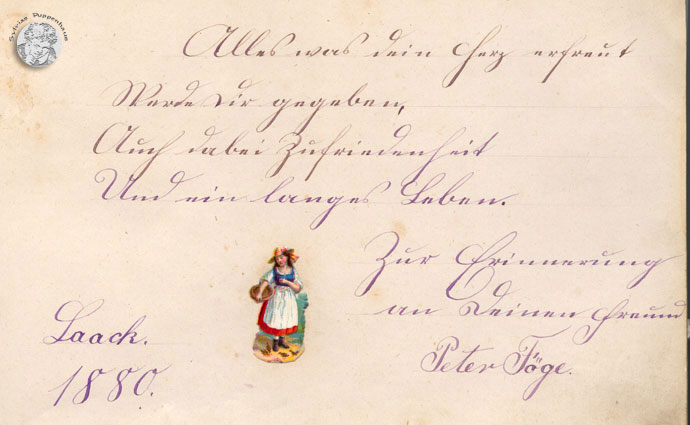 Sylvias Puppenhaus
Alles was dein Herz erfreut
Werde Dir gegeben,
Auch dabei Zufriedenheit
Und ein langes Leben.
Zur Erinnerung
an Deinen Freund
Peter Föge.
Laack.
1880.